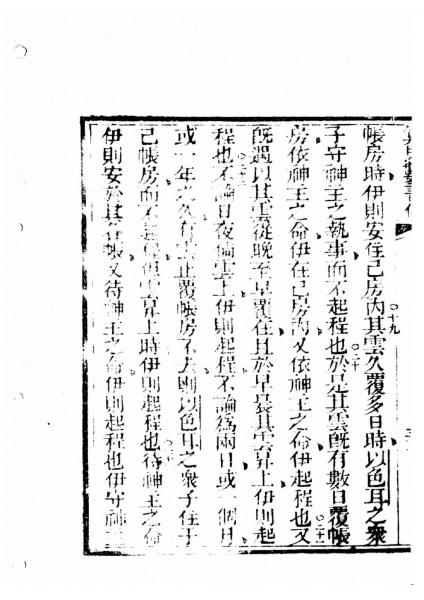 帳房時伊則安住己房內其雲久覆多日時以色耳之衆
子守神王之執事而不起程也於是其雲旣有數日覆帳
房依神王之命伊在己房內又依神王之命伊起程也又
旣遇以其雲從晚至早覆在且於早晨其雲昇上伊則起
程也不論日夜倘雲上伊則起程不論爲兩日或一個月
或一年之久有雲止覆帳房不去則以色耳之衆子住于
己帳房而不起程但雲昇上時伊則起程也待神王之命
伊則安於其各帳又待神王之命伊則起程也伊守神